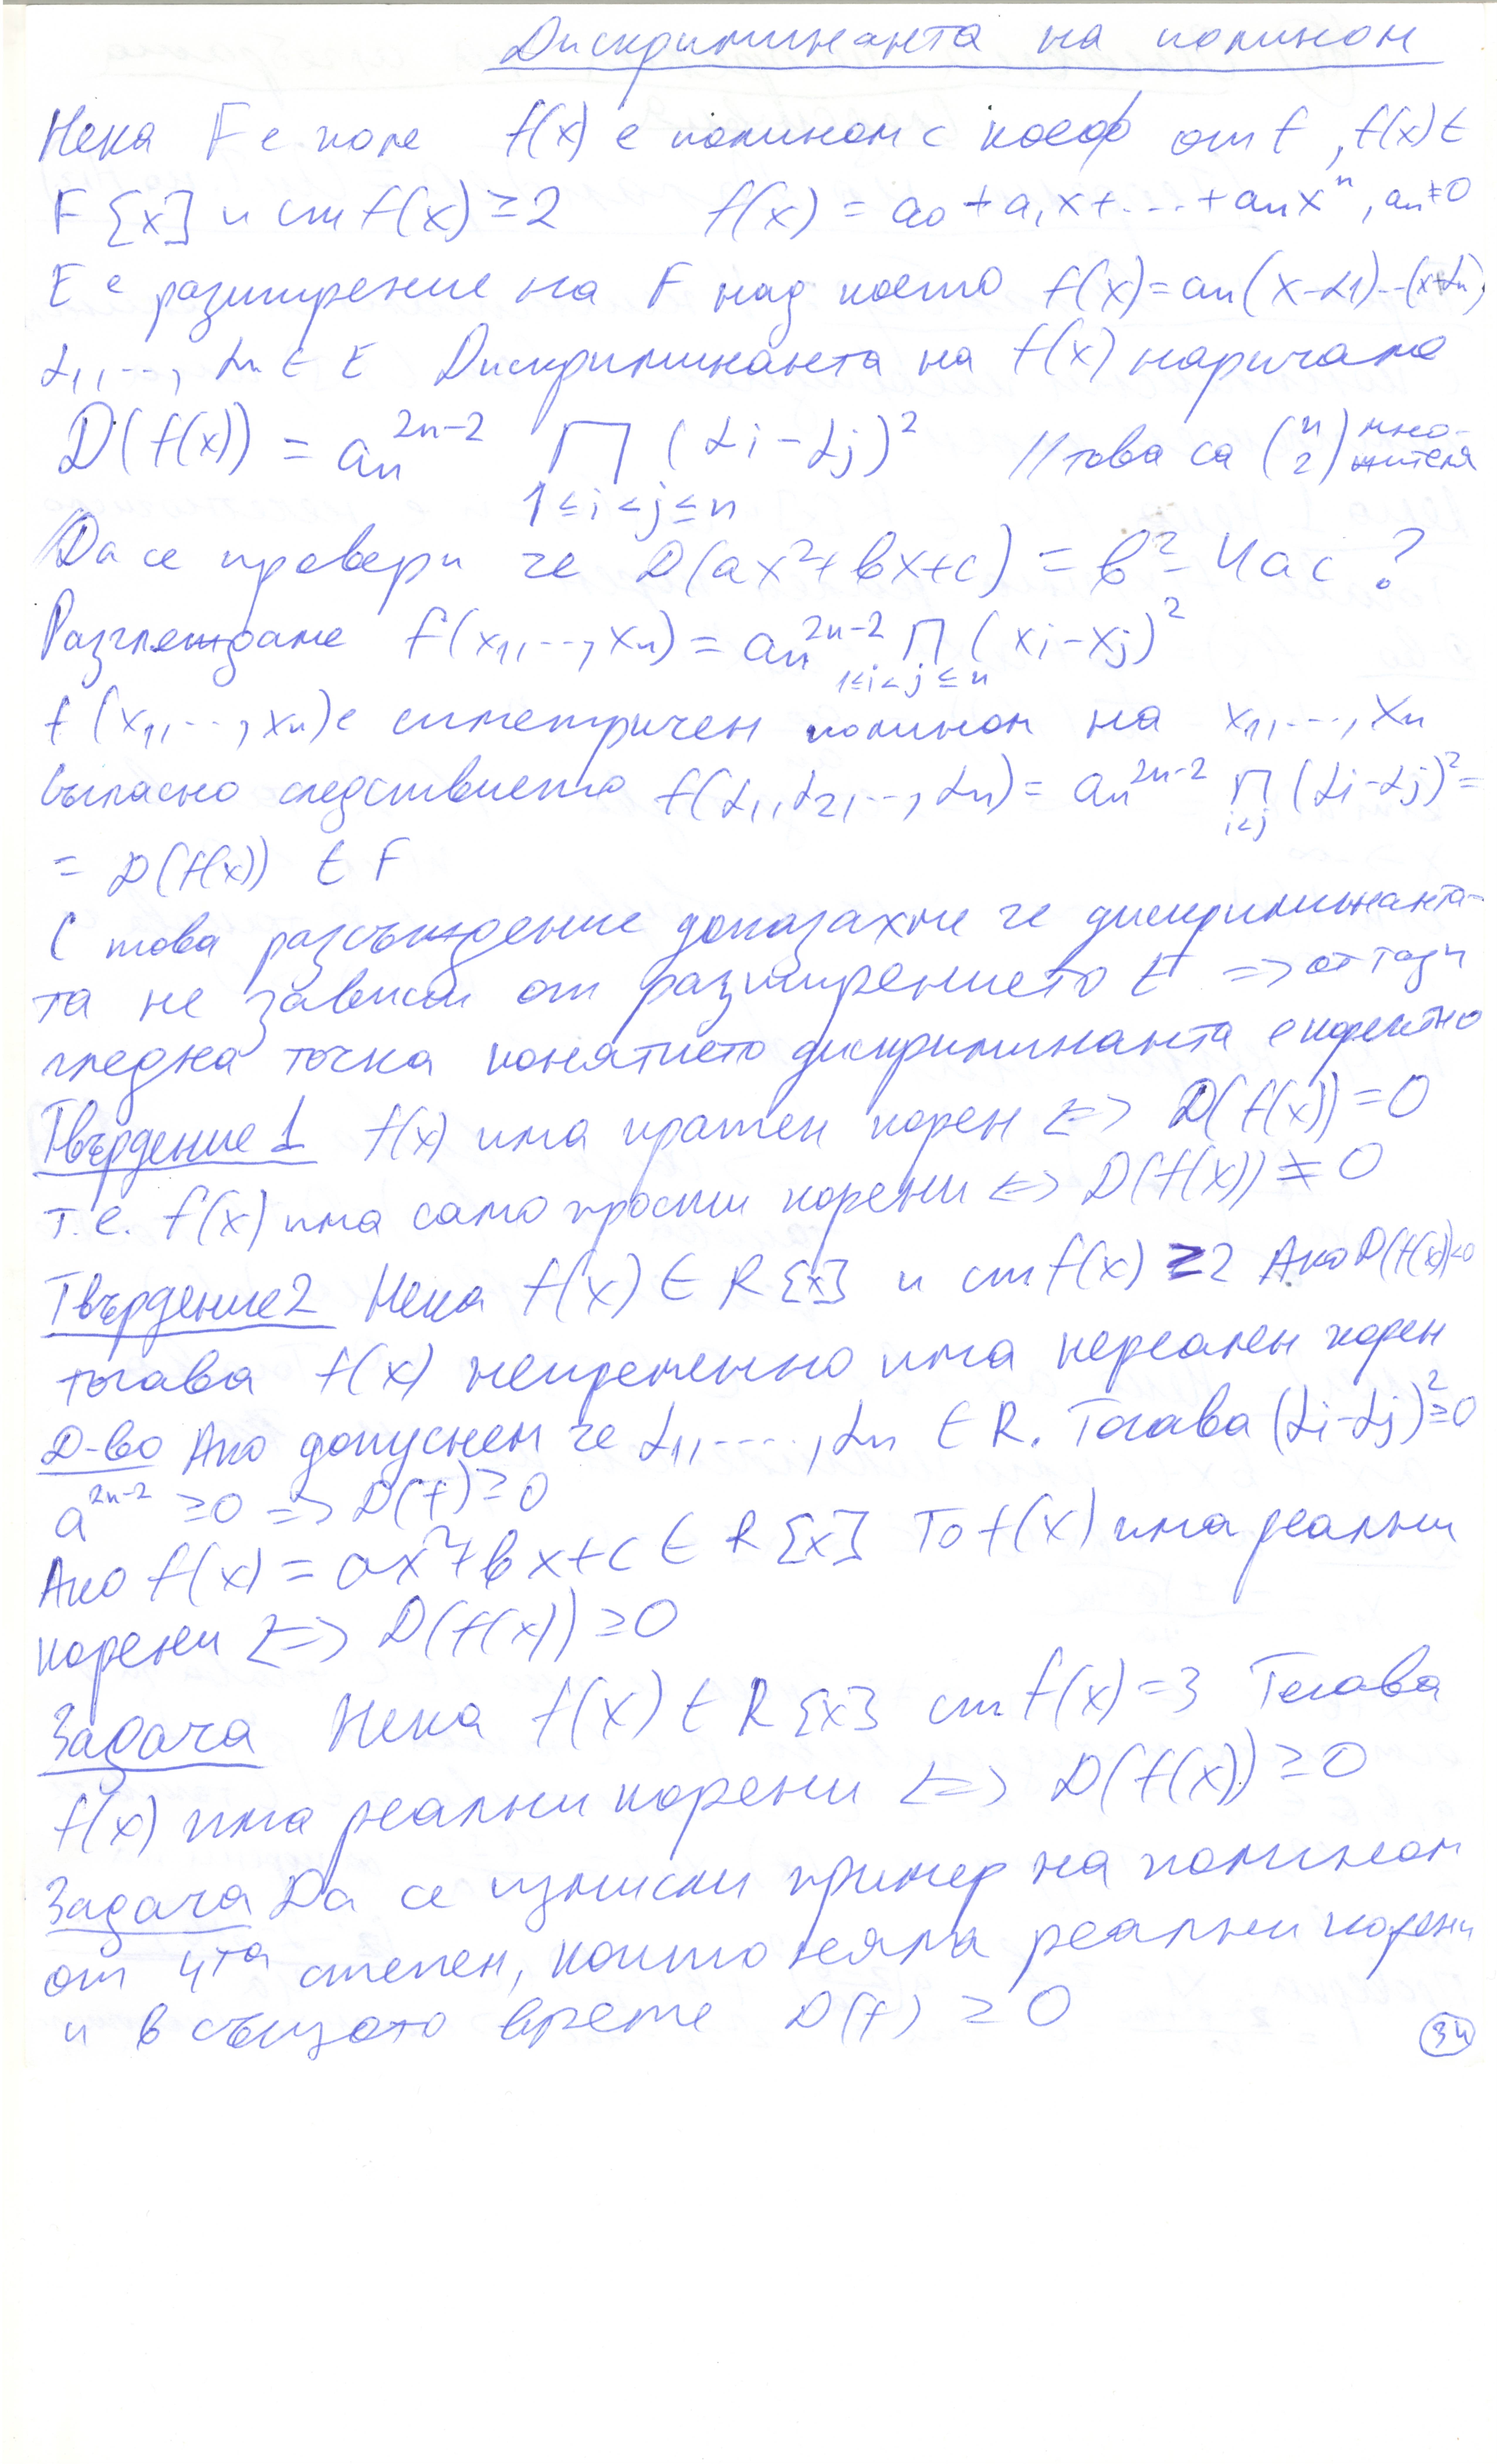 Дискриминанта на полином
Нека F е поле f(x) е полином с коеф от F, f(x) ∈
F[x] и ст f(x) ≥ 2 f(x) = a₀ + a₁x + ... + aₙxⁿ, aₙ ≠ 0
E е разширение на F над което f(x) = aₙ(x-α₁)...(x+αₙ)
α₁,..., αₙ ∈ E Дискриминанта на f(x) наричаме
D(f(x)) = aₙ^(2n-2) ∏ (αi - αj)² // това са (n 2) мно-
1≤i<j≤n жителя
Да се провери че D(ax²+bx+c) = b² - 4ac ?
Разглеждаме f(x₁,..., xₙ) = aₙ^(2n-2) ∏ (xi - xj)²
1≤i<j≤n
f(x₁,..., xₙ) е симетричен полином на x₁,..., xₙ
Съгласно следствието f(α₁, α₂,..., αₙ) = aₙ^(2n-2) ∏ (αi - αj)² =
i<j
= D(f(x)) ∈ F
С това разсъждение доказахме че дискриминанта-
та не зависи от разширението E => от тази
гледна точка понятието дискриминанта е коректно
Твърдение 1 f(x) има кратен корен <=> D(f(x)) = 0
т.е. f(x) има само прости корени <=> D(f(x)) ≠ 0
Твърдение 2 Нека f(x) ∈ R[x] и ст f(x) ≥ 2 Ако D(f(x))<0
тогава f(x) непременно има нереален корен
Д-во Ако допуснем че α₁,...., αₙ ∈ R. Тогава (αi - αj)² ≥ 0
a^(2n-2) ≥ 0 => D(f) ≥ 0
Ако f(x) = ax²+bx+c ∈ R[x] То f(x) има реални
корени <=> D(f(x)) ≥ 0
Задача Нека f(x) ∈ R[x] ст f(x) = 3 Тогава
f(x) има реални корени <=> D(f(x)) ≥ 0
Задача Да се измисли пример на полином
от 4та степен, който няма реални корени
и в същото време D(f) ≥ 0
34